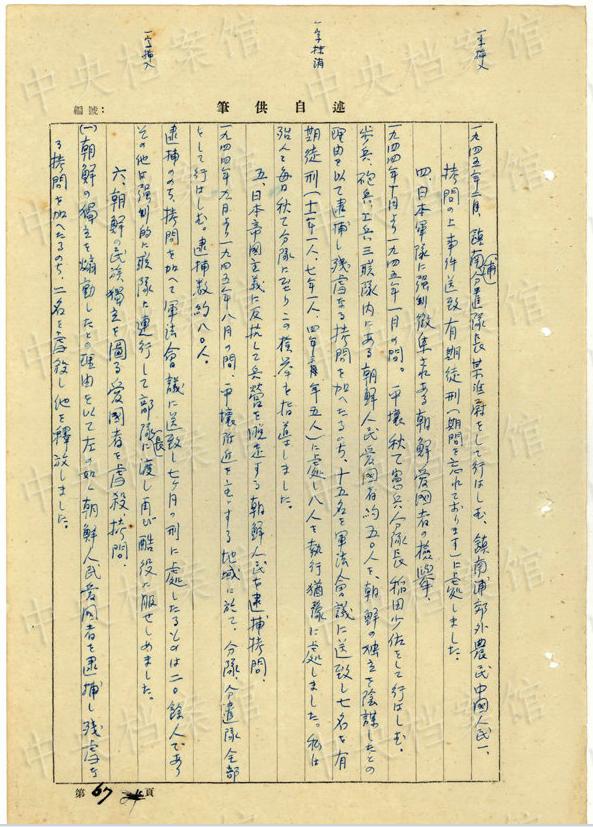 一字挿入
一字抹消
一字挿入
述自供筆
編號:
一九四五年二月、鎮南浦分遣隊長某准尉をして行はしむ、鎮南浦郊外農民中國人民一、
拷問の上事件送致有期徒刑(期間を忘れております)に処しました。
四、日本軍隊に强制徴集されある朝鮮愛國者の檢擧、
一九四四年十月より一九四五年一月の間。平壤秋乙憲兵分隊長稲田少佐をして行はしむ。
歩兵、砲兵、工兵三聯隊内にある朝鮮人民愛国者約五〇人を朝鮮の独立を陰謀したとの
理由を以て逮捕し残虐なる拷問を加へたるのち、十五名を軍法会議に送致し七名を有
期徒刑(十二年一人、七年一人、四年 年五人)に処し八人を執行猶豫に処しました。私は
殆んど毎日秋乙分隊に到りこの檢挙を指導しました。
五、日本帝國主義に反抗して兵營を脱走する朝鮮人民を逮捕拷問、
一九四四年九月より一九四五年八月の間、平壤附近を主とする地域に於て、分隊、分遣隊全部
をして行はしむ。逮捕数約八〇人。
逮捕ののち、拷問を加へて軍法會議に送致し七ヶ月の刑に処したるものは二〇餘人であり
その他は强制的に聯隊に連行して部隊長に渡し再び酷役に服せしめました。
六、朝鮮の民族獨立を圖る愛国者を虐殺拷問、
(一)朝鮮の獨立を煽動したとの理由を以て左の如く朝鮮人民愛国者を逮捕し残虐な
る拷問を加へたるのち、二名を虐殺し他を釋放しました。
第67頁
中央档案馆